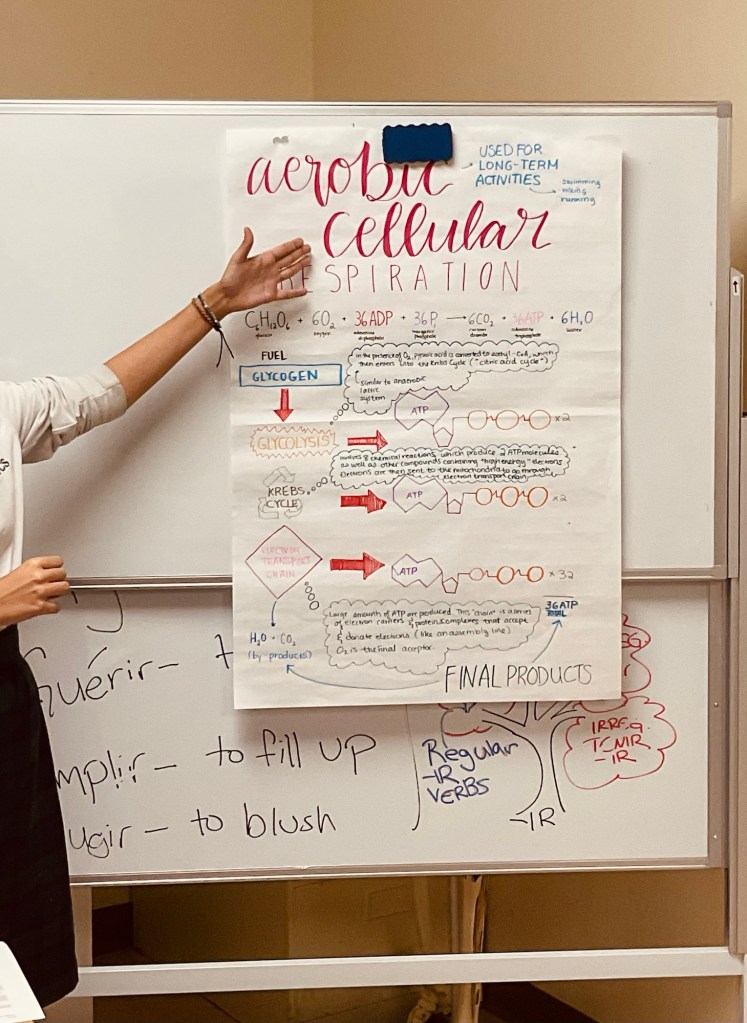 aerobic
cellular
RESPIRATION
USED FOR
LONG-TERM
ACTIVITIES
swimming
hiking
running
C₆H₁₂O₆ + 6O₂ + 36ADP + 36Pᵢ → 6CO₂ + 36ATP + 6H₂O
glucose oxygen adenosine diphosphate inorganic phosphate carbon dioxide adenosine triphosphate water
FUEL
GLYCOGEN
In the presence of O₂, pyruvic acid is converted to acetyl-CoA, which
then enters into the Krebs Cycle ("citric acid cycle")
Similar to anaerobic
lactic
system
GLYCOLYSIS
ATP
x2
involves 8 chemical reactions which produce 2 ATP molecules
as well as other compounds containing "high energy" electrons
Electrons are then sent to the mitochondria to go through
electron transport chain
KREBS
CYCLE
ATP
x2
ELECTRON
TRANSPORT
CHAIN
ATP
x32
36 ATP
TOTAL
Large amounts of ATP are produced. This "chain" is a series
of electron carriers & protein complexes that accept
& donate electrons (like an assembly line)
O₂ is the final acceptor.
H₂O + CO₂
(by products)
FINAL PRODUCTS
Guérir – t
mplir – to fill up
ugir – to blush
Regular
-IR
VERBS
-IR
IRREG.
-IR